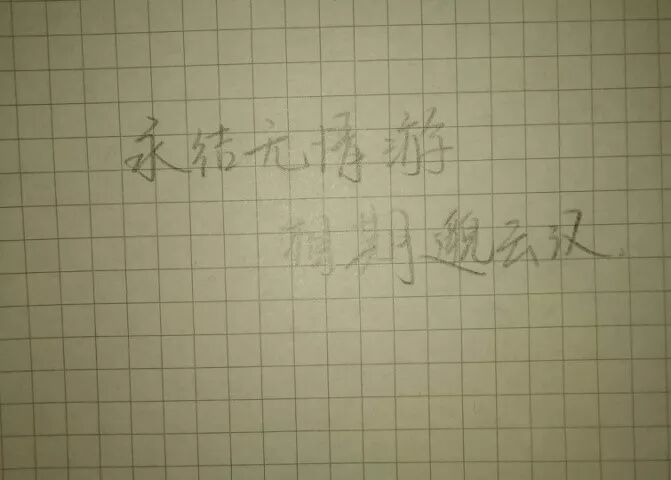 永结无情游
相期邈云汉.